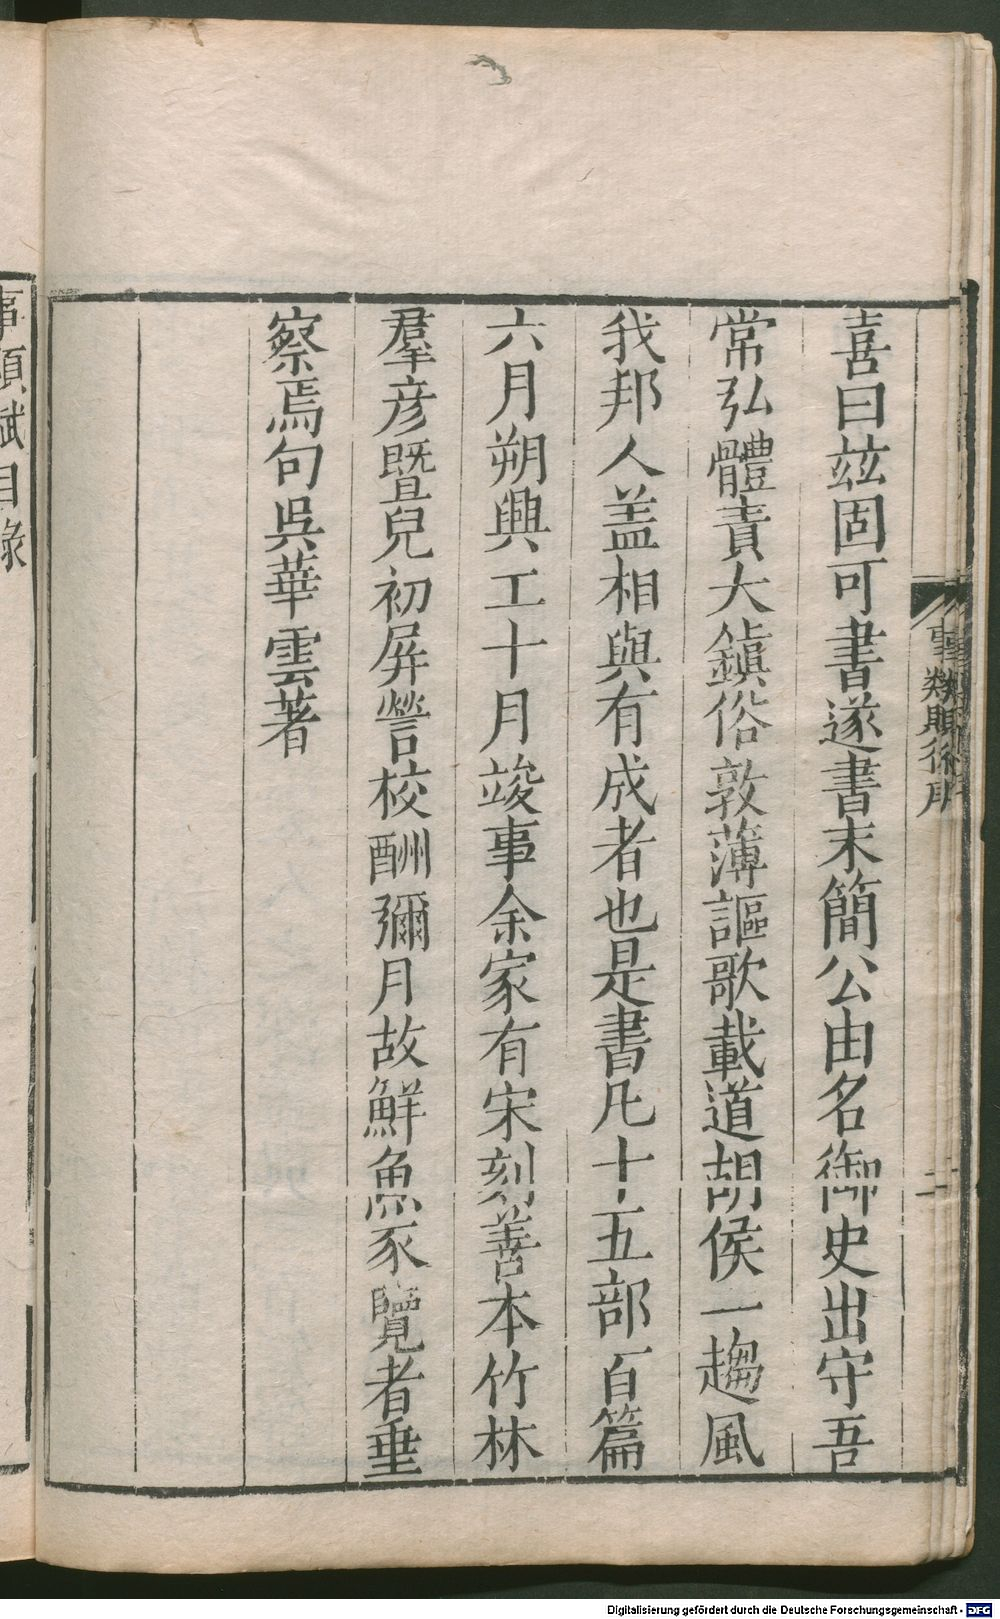 喜曰玆固可書遂書末簡公由名御史出守吾
常弘體責大鎭俗敦薄謳歌載道胡侯一趨風
我邦人盖相與有成者也是書凡十五部百篇
六月朔興工十月竣事余家有宋刻善本竹林
羣彦曁兒初屏謍校酬彌月故鮮魚豕覽者垂
察焉句吳華雲著
事類賦後序
二
事類賦目錄
Digitalisierung gefördert durch die Deutsche Forschungsgemeinschaft - DFG